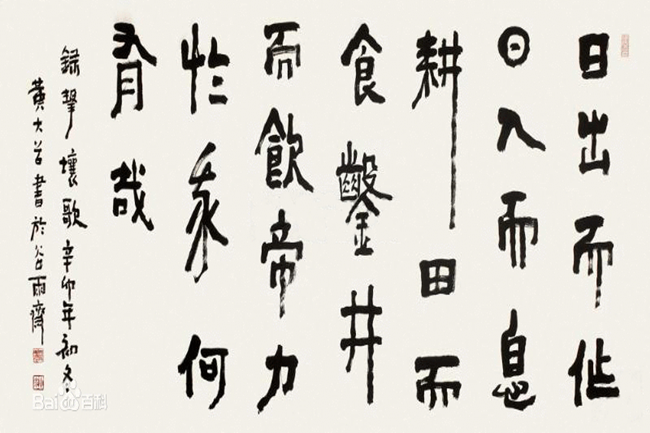 日出而作
日入而息
耕田而
食鑿井
而飲帝力
於我何
有哉
錄擊壤歌辛卯年初冬
黃大書於谷雨齋
Bai百科